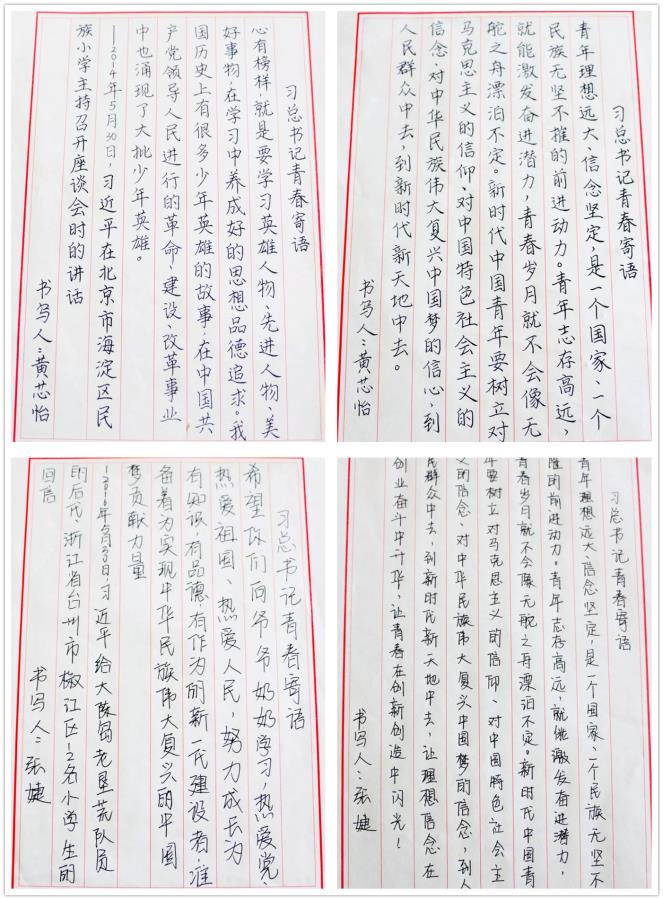 习总书记青春寄语
心有榜样,就是要学习英雄人物、先进人物、美
好事物,在学习中养成好的思想品德追求。我
国历史上有很多少年英雄的故事,在中国共
产党领导人民进行的革命、建设、改革事业
中也涌现了大批少年英雄。
——2014年5月30日,习近平在北京市海淀区民
族小学主持召开座谈会时的讲话
书写人:黄芯怡
习总书记青春寄语
青年理想远大、信念坚定,是一个国家、一个
民族无坚不摧的前进动力。青年志存高远,
就能激发奋进潜力,青春岁月就不会像无
舵之舟漂泊不定。新时代中国青年要树立对
马克思主义的信仰、对中国特色社会主义的
信念、对中华民族伟大复兴中国梦的信心,到
人民群众中去,到新时代新天地中去。
书写人:黄芯怡
习总书记青春寄语
希望你们向爷爷奶奶学习,热爱党、
热爱祖国、热爱人民,努力成长为
有知识,有品德,有作为的新一代建设者,准
备着为实现中华民族伟大复兴的中国
梦贡献力量
—2016年5月30日,习近平给大陈岛老垦荒队员
的后代、浙江省台州市椒江区12名小学生的
回信
书写人:张婕
习总书记青春寄语
青年理想远大、信念坚定,是一个国家、一个民族无坚不
摧的前进动力。青年志存高远,就能激发奋进潜力,
青春岁月就不会像无舵之舟漂泊不定。新时代中国青
年要树立对马克思主义的信仰、对中国特色社会主
义的信念、对中华民族伟大复兴中国梦的信念,到人
民群众中去,到新时代新天地中去,让理想信念在
创业奋斗中升华,让青春在创新创造中闪光!
书写人:张婕